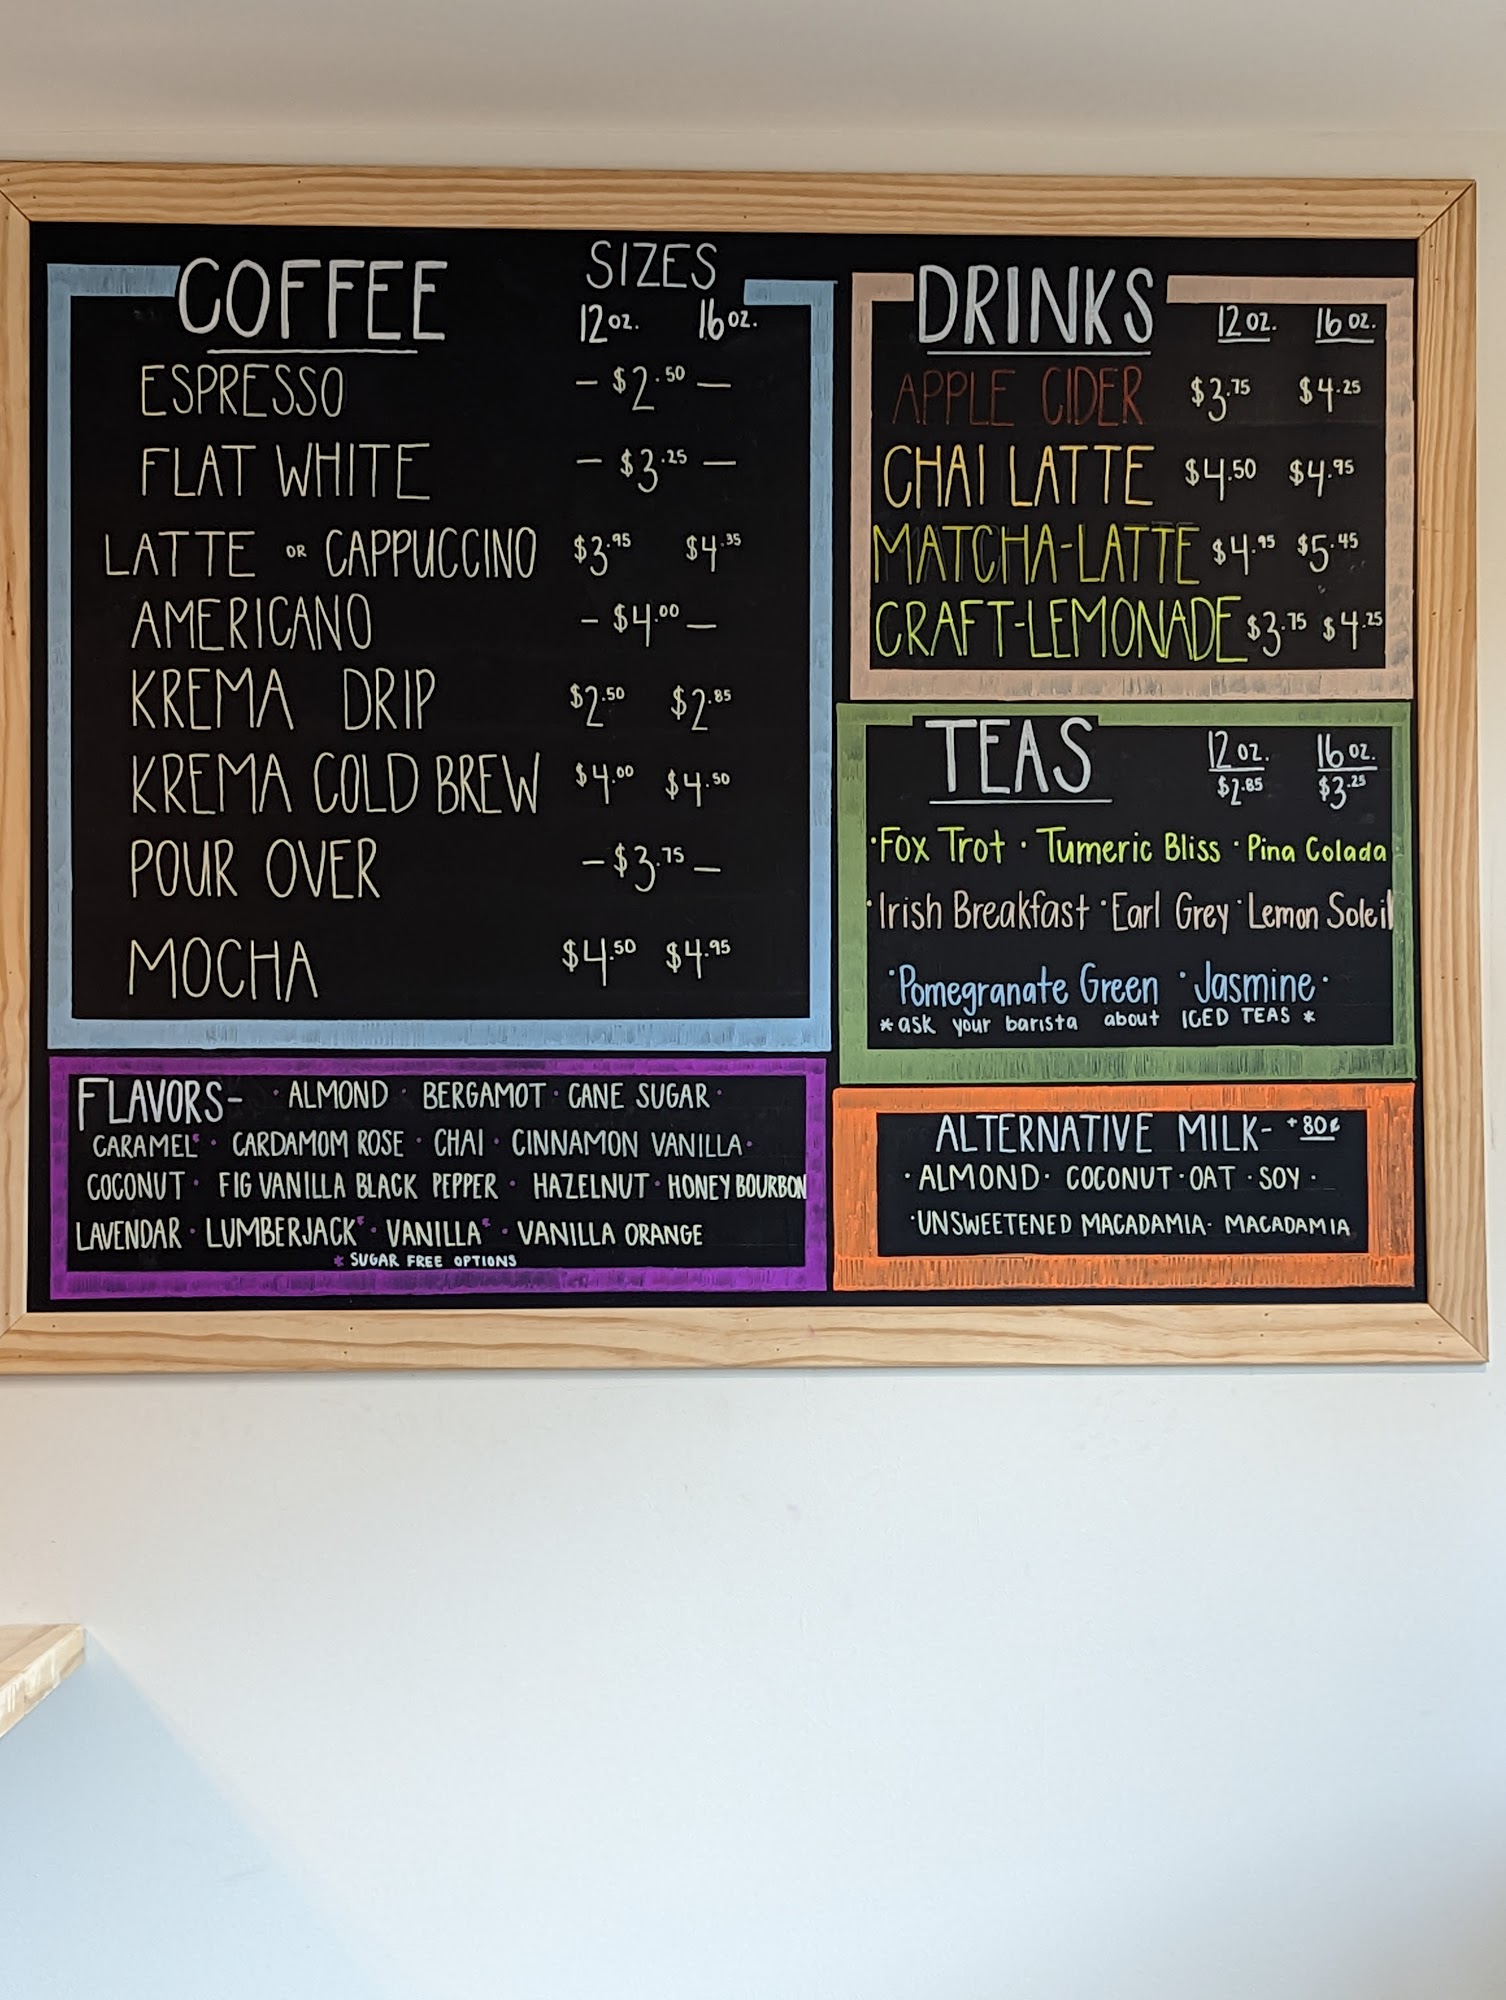 COFFEE SIZES
12 oz. 16 oz.
ESPRESSO - $2.50 -
FLAT WHITE - $3.25 -
LATTE OR CAPPUCCINO $3.95 $4.35
AMERICANO - $4.00 -
KREMA DRIP $2.50 $2.85
KREMA COLD BREW $4.00 $4.50
POUR OVER - $3.75 -
MOCHA $4.50 $4.95
FLAVORS- · ALMOND · BERGAMOT · CANE SUGAR ·
CARAMEL* · CARDAMOM ROSE · CHAI · CINNAMON VANILLA ·
COCONUT · FIG VANILLA BLACK PEPPER · HAZELNUT · HONEY BOURBON
LAVENDAR · LUMBERJACK* · VANILLA* · VANILLA ORANGE
* SUGAR FREE OPTIONS
DRINKS 12 oz. 16 oz.
APPLE CIDER $3.75 $4.25
CHAI LATTE $4.50 $4.95
MATCHA-LATTE $4.95 $5.45
CRAFT-LEMONADE $3.75 $4.25
TEAS 12 oz. 16 oz.
$2.85 $3.25
·Fox Trot · Tumeric Bliss · Pina Colada
·Irish Breakfast ·Earl Grey ·Lemon Soleil
·Pomegranate Green ·Jasmine·
*ask your barista about ICED TEAS *
ALTERNATIVE MILK- +80¢
· ALMOND · COCONUT · OAT · SOY ·
·UNSWEETENED MACADAMIA· MACADAMIA